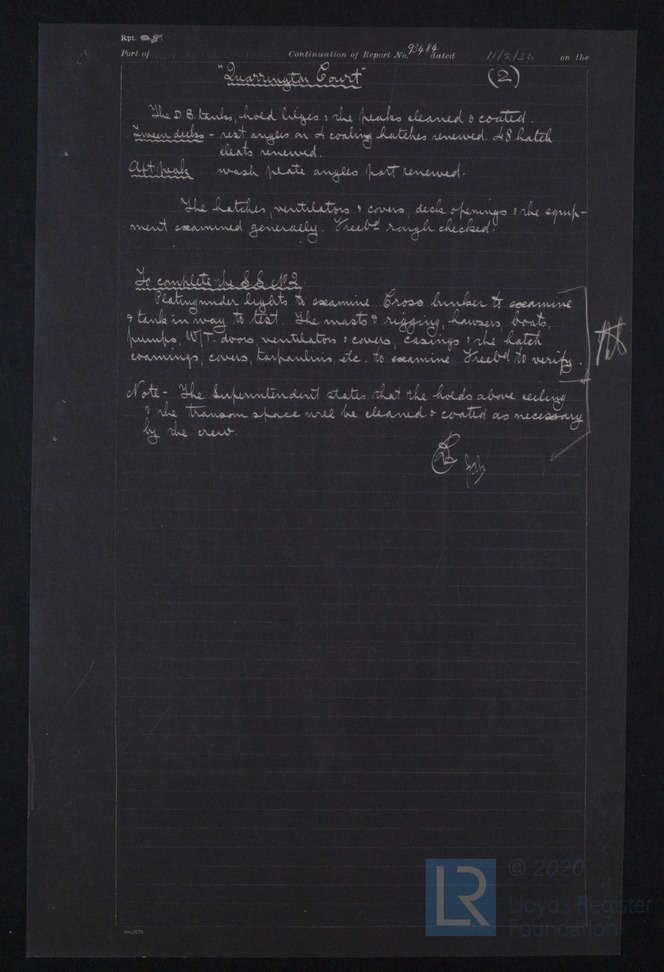 Rpt.
Port of Continuation of Report No. 93484 dated 11/2/36 on the
"Quarrington Court" (2)
The D.B. tanks, hold bilges & the peaks cleaned & coated.
Tween decks - rest angles on 4 coaling hatches renewed. 48 hatch
cleats renewed.
Aft peak wash plate angles part renewed.
The hatches, ventilators & covers, deck openings & the equip-
ment examined generally. Freebd rough checked.
To complete the S.S. No 2
Plating under lights to examine. Cross bunker to examine
& tank in way to test. The masts & rigging, hawsers, boats,
pumps, W/T. doors, ventilators & covers, casings & the hatch
coamings, covers, tarpaulins etc. to examine Freebd to verify.
Note - The Superintendent states that the holds above ceiling
& the transom space will be cleaned & coated as necessary
by the crew.
LR
© 2020
Lloyd's Register
Foundation